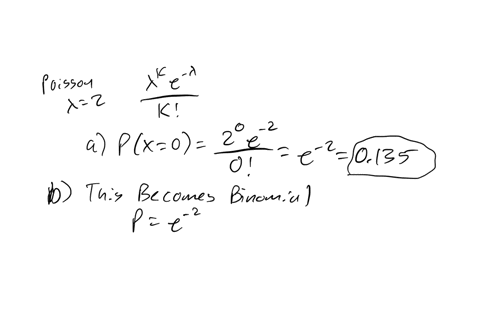 Poisson λ^K e^-λ / K!
λ=2
a) P(x=0) = 2^0 e^-2 / 0! = e^-2 = 0.135
b) This Becomes Binomial
P = e^-2